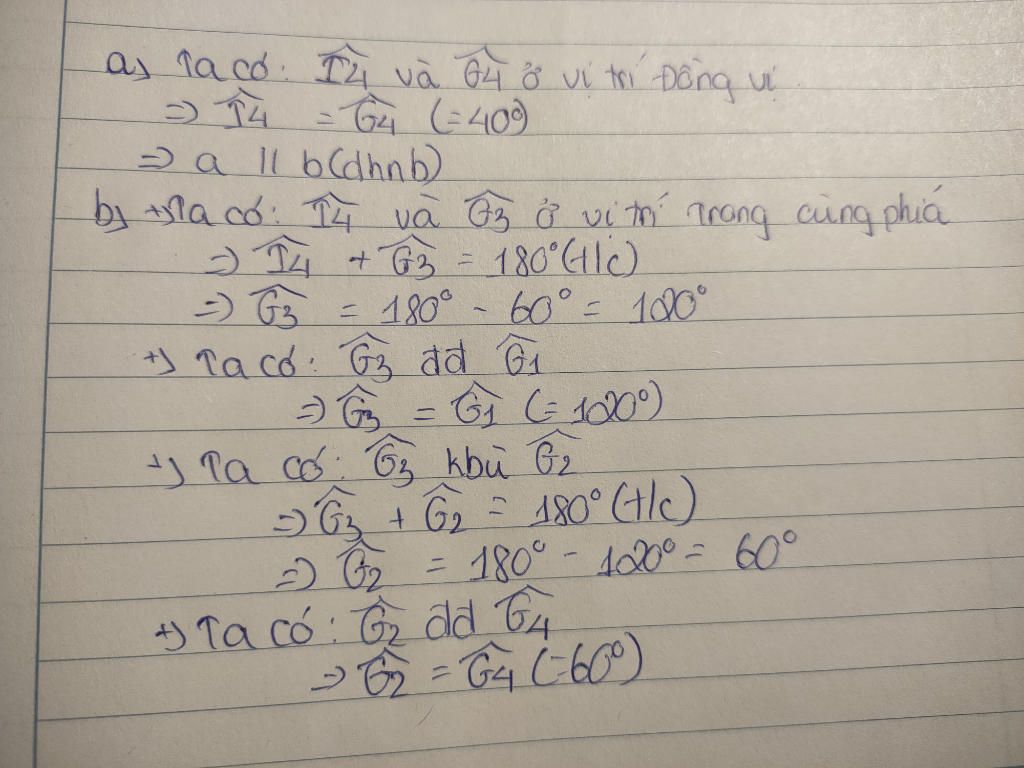 a) Ta có: Î4 và Ĝ4 ở vị trí Đồng vị
=> Î4 = Ĝ4 (=40°)
=> a // b (dhnb)
b) +) Ta có: Î4 và Ĝ3 ở vị trí Trong cùng phiá
=> Î4 + Ĝ3 = 180° (t/c)
=> Ĝ3 = 180° - 60° = 120°
+) Ta có: Ĝ3 dd Ĝ1
=> Ĝ3 = Ĝ1 (=120°)
+) Ta có: Ĝ3 kbù Ĝ2
=> Ĝ3 + Ĝ2 = 180° (t/c)
=> Ĝ2 = 180° - 120° = 60°
+) Ta có: Ĝ2 dd Ĝ4
=> Ĝ2 = Ĝ4 (=60°)